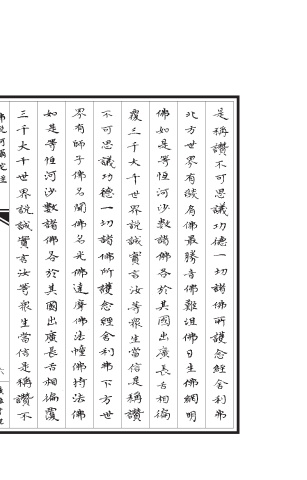 是稱讚不可思議功德一切諸佛所護念經舍利弗
北方世界有燄肩佛最勝音佛難沮佛日生佛網明
佛如是等恒河沙數諸佛各於其國出廣長舌相徧
覆三千大千世界說誠實言汝等眾生當信是稱讚
不可思議功德一切諸佛所護念經舍利弗下方世
界有師子佛名聞佛名光佛達摩佛法幢佛持法佛
如是等恒河沙數諸佛各於其國出廣長舌相徧覆
三千大千世界說誠實言汝等眾生當信是稱讚不